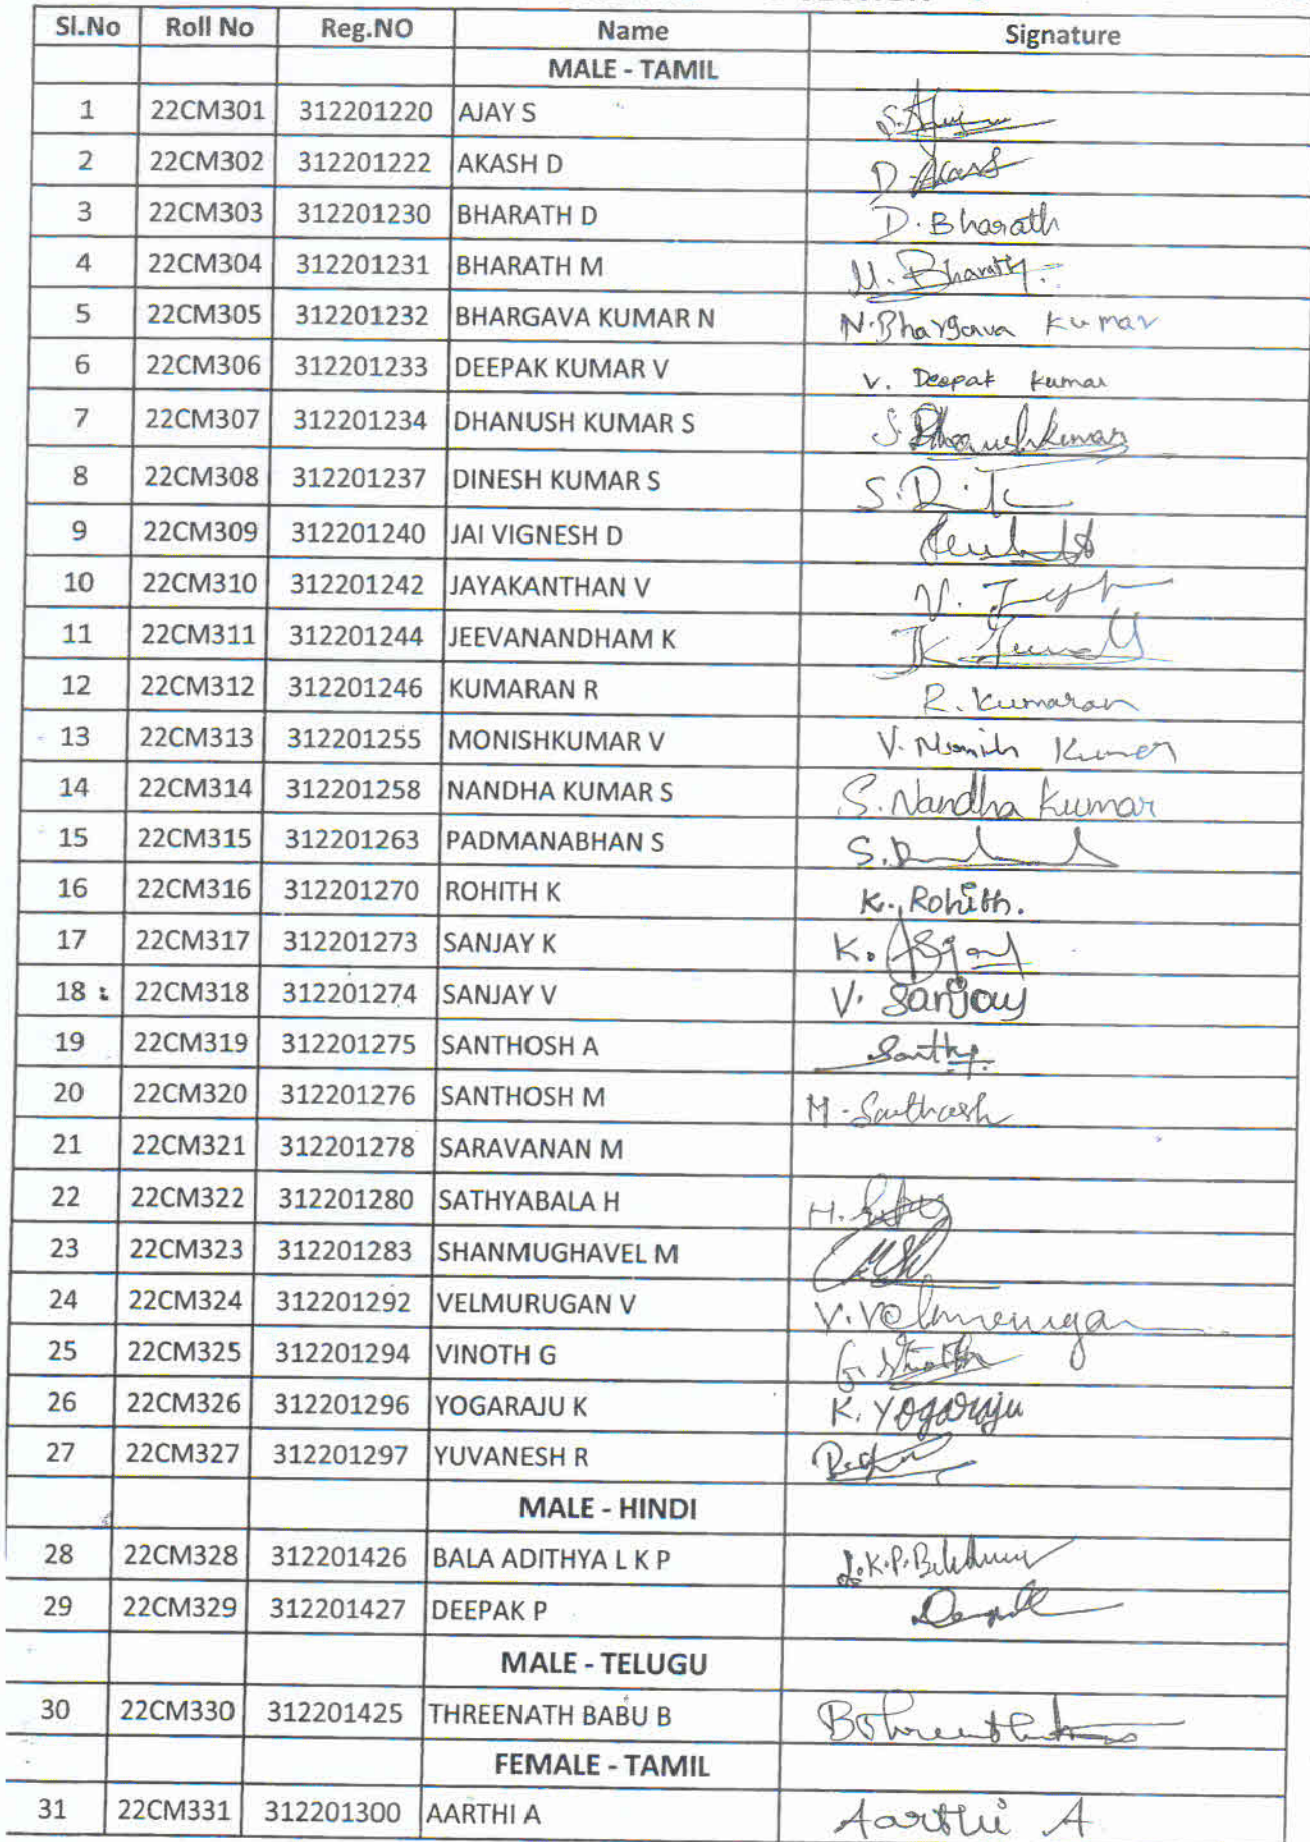 Sl.No Roll No Reg.NO Name Signature
MALE - TAMIL
1 22CM301 312201220 AJAY S
2 22CM302 312201222 AKASH D D.
3 22CM303 312201230 BHARATH D D. Bharath
4 22CM304 312201231 BHARATH M M. Bharath.
5 22CM305 312201232 BHARGAVA KUMAR N N.Bhargava Kumar
6 22CM306 312201233 DEEPAK KUMAR V V. Deepak kumar
7 22CM307 312201234 DHANUSH KUMAR S S. Dhanushkumar
8 22CM308 312201237 DINESH KUMAR S S.
9 22CM309 312201240 JAI VIGNESH D
10 22CM310 312201242 JAYAKANTHAN V V.
11 22CM311 312201244 JEEVANANDHAM K
12 22CM312 312201246 KUMARAN R R. Kumaran
13 22CM313 312201255 MONISHKUMAR V V. Monish Kumar
14 22CM314 312201258 NANDHA KUMAR S S. Nandha Kumar
15 22CM315 312201263 PADMANABHAN S S.
16 22CM316 312201270 ROHITH K K. Rohith.
17 22CM317 312201273 SANJAY K K.
18 22CM318 312201274 SANJAY V V. Sanjay
19 22CM319 312201275 SANTHOSH A
20 22CM320 312201276 SANTHOSH M M. Santhosh
21 22CM321 312201278 SARAVANAN M
22 22CM322 312201280 SATHYABALA H H.
23 22CM323 312201283 SHANMUGHAVEL M
24 22CM324 312201292 VELMURUGAN V V. Velmurugan
25 22CM325 312201294 VINOTH G G. Vinoth
26 22CM326 312201296 YOGARAJU K K. Yogaraju
27 22CM327 312201297 YUVANESH R
MALE - HINDI
28 22CM328 312201426 BALA ADITHYA L K P L.K.P.
29 22CM329 312201427 DEEPAK P
MALE - TELUGU
30 22CM330 312201425 THREENATH BABU B
FEMALE - TAMIL
31 22CM331 312201300 AARTHI A Aarthi A